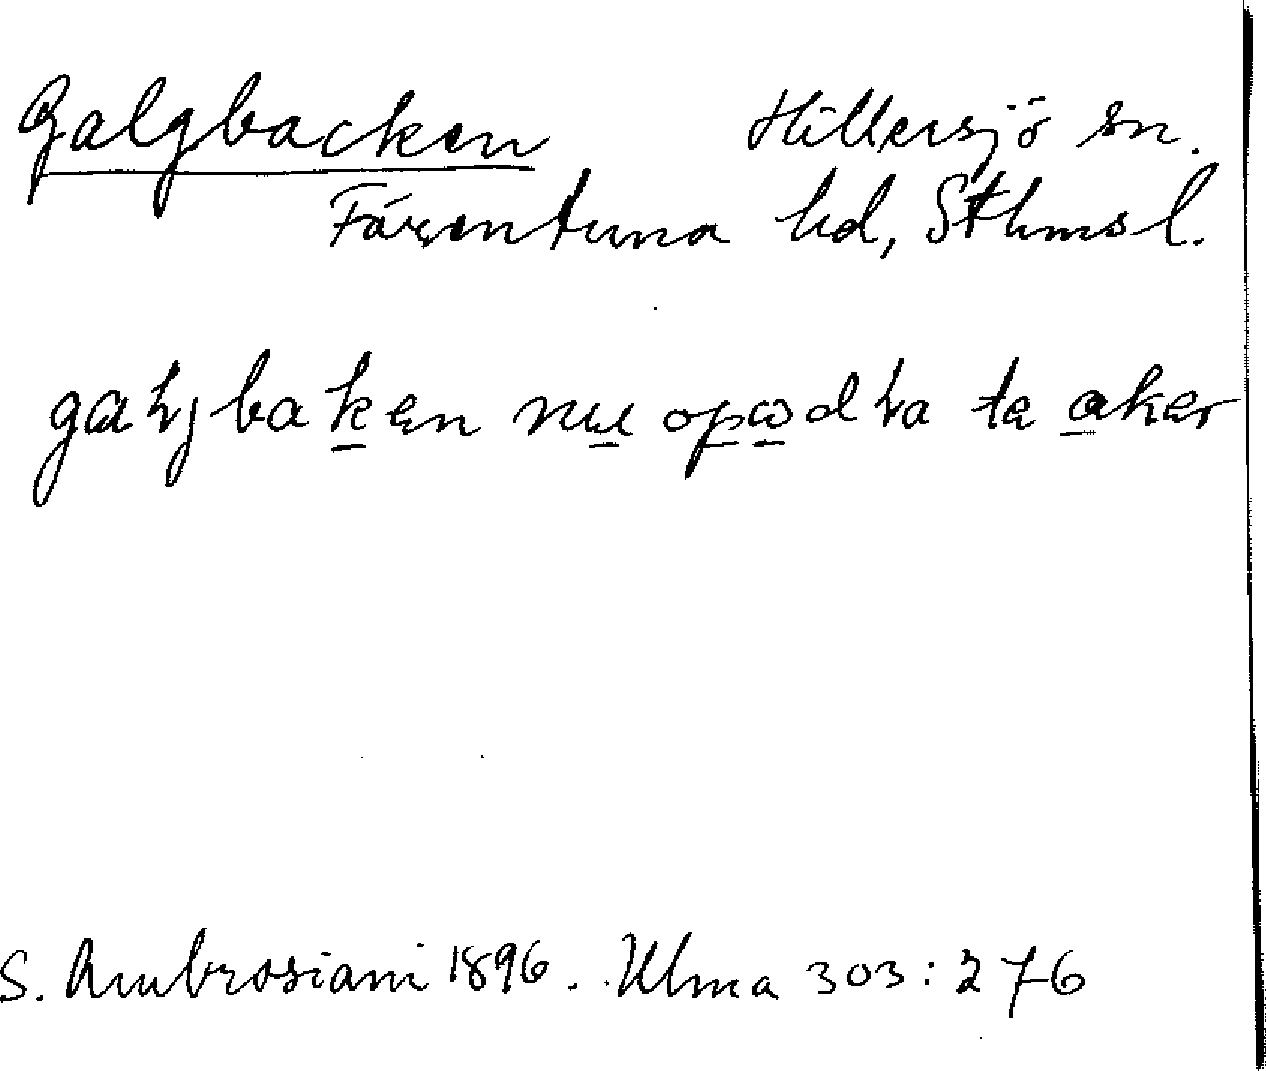 Galgbacken Hillersjö sn.
Färentuna hd, Sthmsl.
galgbaken nu opodla te aker
S. Ambrosiani 1896. Ulma 303:276